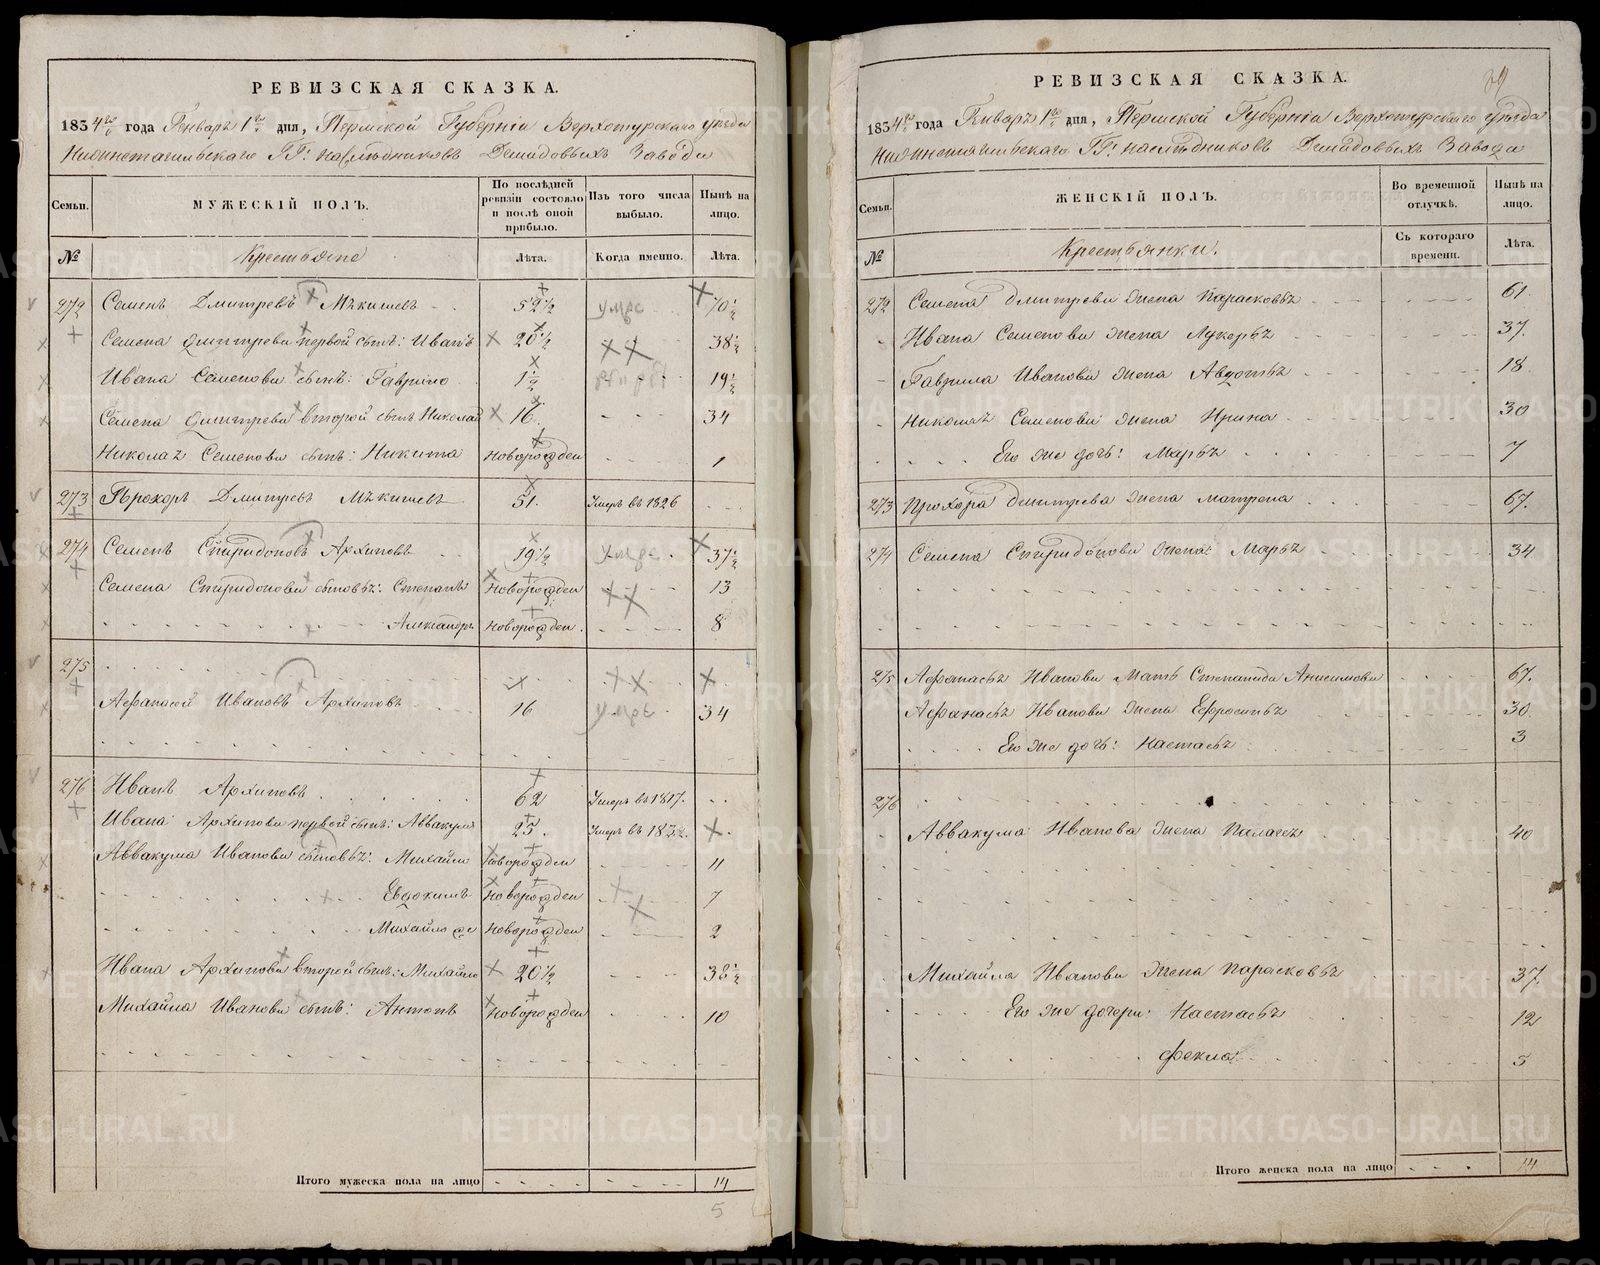 РЕВИЗСКАЯ СКАЗКА.
1834го года Генваря 1го дня, Пермской Губерніи Верхотурскаго уѣзда
Нижнетагильскаго ГГ: наслѣдниковъ Демидовыхъ Завода
Семьи.
МУЖЕСКІЙ ПОЛЪ.
По послѣдней ревизіи состояло и послѣ оной прибыло.
Изъ того числа выбыло.
Нынѣ на лицо.
№
Крестьяне
Лѣта.
Когда именно.
Лѣта.
272 Семенъ Дмитревъ Мѣкишевъ 52½ умре 70½
Семена Дмитреви первой сынъ: Иванъ 20½ 38½
Ивана Семенови сынъ: Гаврило 1½ 19½
Семена Дмитреви второй сынъ Николай 16. 34
Николая Семенови сынъ: Никита Новорожден 1
273 Прохоръ Дмитревъ Мѣкишевъ 51. Умеръ въ 1826
274 Семенъ Спиридоновъ Архиповъ 19½ умре 37½
Семена Спиридонови сыновья: Степанъ Новорожден 13
Александръ Новорожден. 8
275
Афанасей Ивановъ Архиповъ 16 умре 34
276 Иванъ Архиповъ 62 Умеръ въ 1817.
Ивана Архипови первой сынъ: Аввакумъ 25. Умеръ въ 1832.
Аввакума Иванови сыновья: Михайло Новорожден 11
Евдокимъ Новорожден 7
Михайло же Новорожден 2
Ивана Архипови второй сынъ: Михайло 20½ 38½
Михайла Иванови сынъ: Антонъ Новорожден 10
Итого мужеска пола на лицо 14
5
РЕВИЗСКАЯ СКАЗКА.
1834го года Генваря 1го дня, Пермской Губерніи Верхотурскаго уѣзда
Нижнетагильскаго ГГ: наслѣдниковъ Демидовыхъ Завода
Семьи.
ЖЕНСКІЙ ПОЛЪ.
Во временной отлучкѣ.
Нынѣ на лицо.
№
Крестьянки.
Съ котораго времени.
Лѣта.
272 Семена Дмитреви жена Парасковья 61.
Ивана Семенови жена Лукерья 37.
Гаврила Иванови жена Авдотья 18
Николая Семенови жена Ирина 30
Его же дочь: Марья 7
273 Прохора Дмитрева жена Матрена 67.
274 Семена Спиридонови жена: Марья 34
275 Афанасья Иванови Мать Степанида Анисимови 67.
Афанасья Иванови жена Ефросинья 30
Его же дочь: Настасья 3
276
Аввакума Иванова жена Палагея 40
Михайла Иванови жена Парасковья 37.
Его же дочери: Настасья 12
Фекла 5
Итого женска пола на лицо 14
METRIKI.GASO-URAL.RU